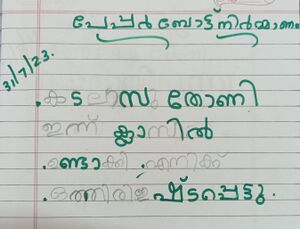 പേപ്പർ ബോട്ട് നിർമ്മാണം
31/7/23.
. കടലാസു തോണി
ഇന്ന് ക്ലാസിൽ
. ണ്ടാക്കി . എനിക്ക്
. ഒത്തിരി ഇഷ്ടപ്പെട്ടു.